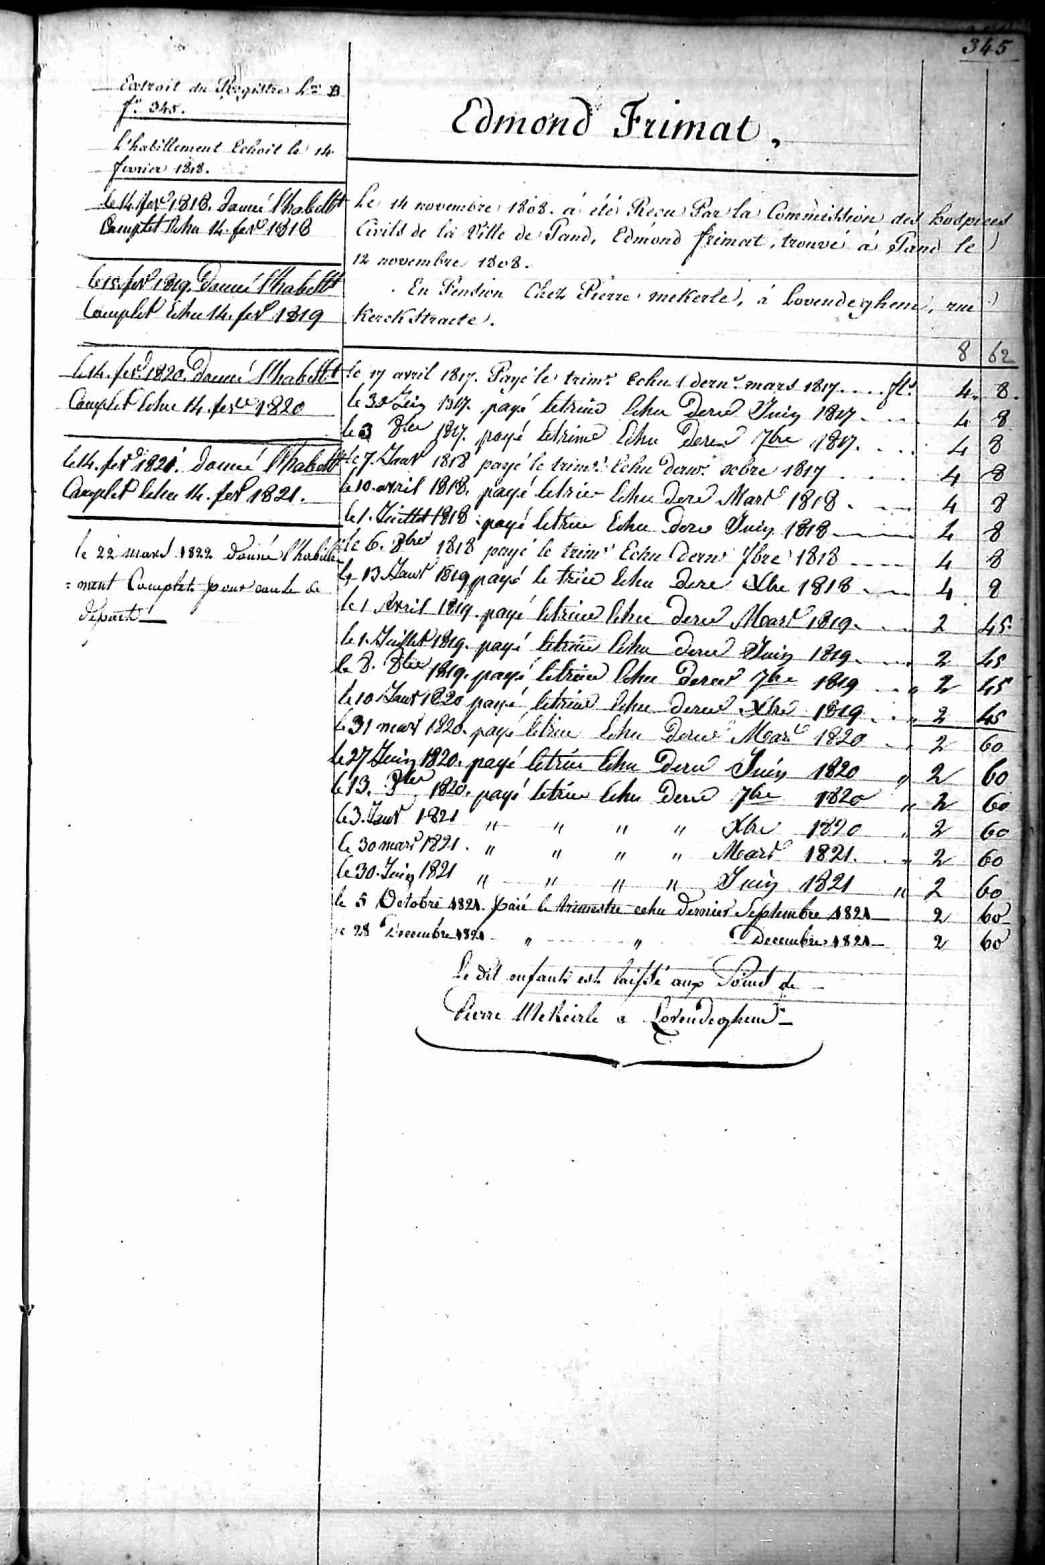 345
Extrait du Registre L.re B
f.o 345.
L'habillement Echoit le 14
fevrier 1818.
le 14. fev.r 1818. donné l'habillt
Complet Echu 14. fev.r 1818
le 15. fev.r 1819. Donné l'habillt
Complet Echu 14. fev.r 1819
le 14. fev.r 1820. Donné l'habillt
Complet Echu 14. fev.r 1820
le 14. fev.r 1821. Donné l'habillt
Complet Echu 14. fev.r 1821.
le 22 mars 1822 donné l'habille
= ment Complet pour cause de
départ
Edmond Frimat,
Le 14 novembre 1808. à été Recu Par la Commission des hospices
Civils de la Ville de Gand, Edmond frimat, trouvé à Gand le
12 novembre 1808.
En Pension Chez Pierre mekerle, à Lovendeghem, rue
Kerckstraete.
8 62
le 17 avril 1817. Payé le trim.e echu 1 dern.r mars 1817 .... fl.s 4. 8.
le 30 Juin 1817. payé le trime Echu Dern.r Juin 1817 4 8
le 3 8bre 1817. payé le trime Echu Dern.r 7bre 1817. 4 8
le 7. Janr 1818 payé le trim.e Echu dern.r xbre 1817 4 8
le 10. avril 1818. payé le trie Echu dern.r Mars 1818. 4 8
le 1. Juillet 1818. payé le trie Echu dern.r Juin 1818 4 8
le 6. 8bre 1818 payé le trim.e Echu Dern.r 7bre 1818 4 8
le 13 Janr 1819 payé le trie Echu dern.r Xbre 1818 4 8
le 1 Avril 1819. payé le trie Echu dern.r Mars 1819. 2 45.
le 1. Juillet 1819. payé le trie Echu dern.r Juin 1819. 2 45
le 8. 8bre 1819. payé le trie Echu dern.r 7bre 1819 " 2 45
le 10 Janr 1820 payé le trie Echu dern.r Xbre 1819 " 2 45
le 31 mars 1820. payé le trie Echu dern.r Mars 1820 " 2 60
le 27 Juin 1820. payé le trie Echu Dern.r Juin 1820 " 2 60
le 13. 8bre 1820. payé le trie Echu dern.r 7bre 1820 " 2 60
le 3. Janr 1821 " " " " Xbre 1820 " 2 60
le 30 mars 1821. " " " " Mars 1821. " 2 60
le 30. Juin 1821 " " " " Juin 1821 " 2 60
le 5 Octobre 1821. paié le trimestre echu dernier Septembre 1821 2 60
le 28 Decembre 1821 " " Decembre 1821 2 60
Le dit enfant est laissé aux Soins de
Pierre Mekeirle a Lovendeghem